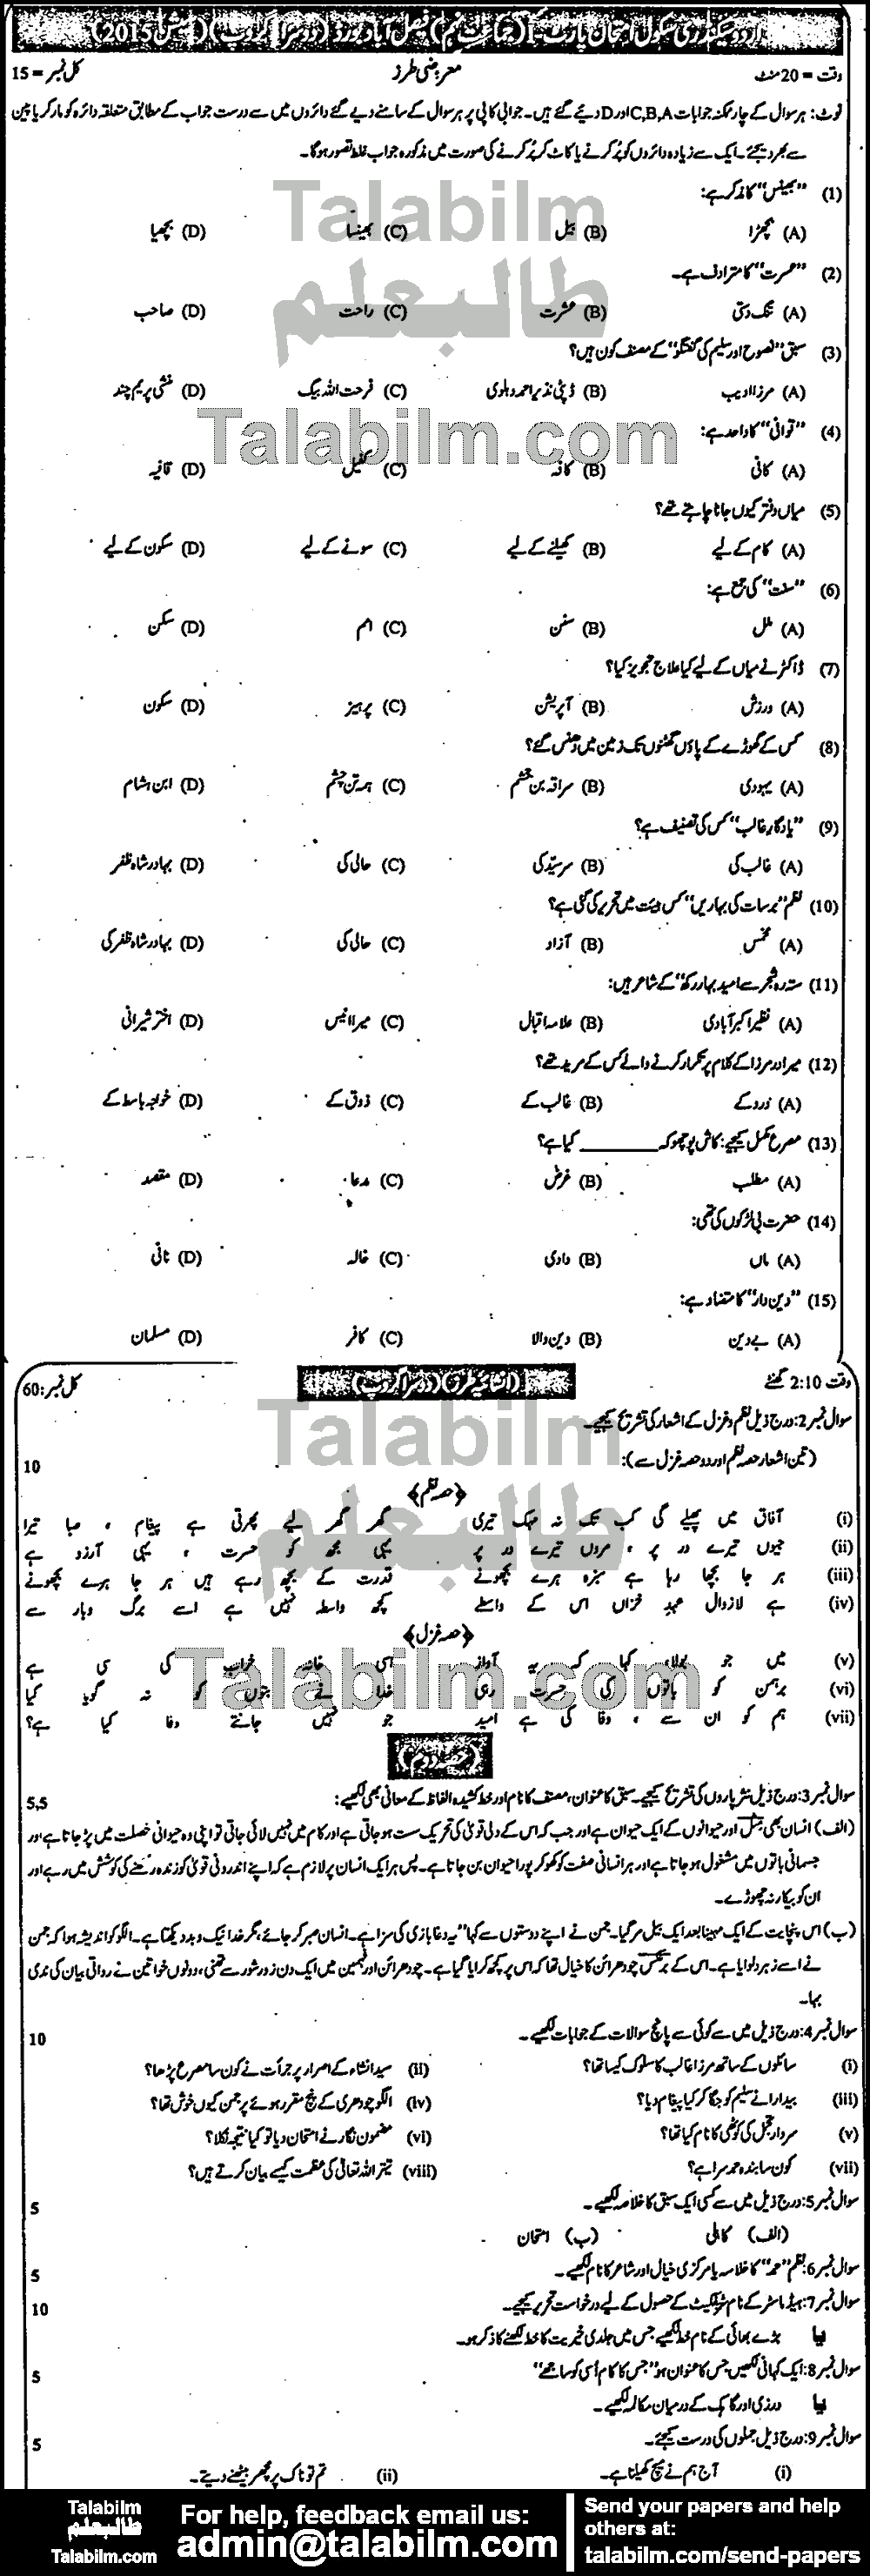 اردو سیکنڈری سکول امتحان پارٹ-I (جماعت نہم) فیصل آباد بورڈ (دوسرا گروپ) (سیشن 2015)
وقت = 20 منٹ معروضی طرز کل نمبر = 15
نوٹ: ہر سوال کے چار ممکنہ جوابات C,B,A اور D دیئے گئے ہیں۔ جوابی کاپی پر ہر سوال کے سامنے دیے گئے دائروں میں سے درست جواب کے مطابق متعلقہ دائرہ کو مارکر یا پین
سے بھر دیجئے۔ ایک سے زیادہ دائروں کو پُر کرنے یا کاٹ کر پُر کرنے کی صورت میں مذکورہ جواب غلط تصور ہوگا۔
Talabilm
طالبعلم
(1) "بھینس" کا مذکر ہے:
(A) بچھڑا (B) بیل (C) بھینسا (D) بچھیا
(2) "عسرت" کا مترادف ہے۔
(A) تنگ دستی (B) عشرت (C) راحت (D) صاحب
(3) سبق "نصوح اور سلیم کی گفتگو" کے مصنف کون ہیں؟
(A) مرزا ادیب (B) ڈپٹی نذیر احمد دہلوی (C) فرحت اللہ بیگ (D) منشی پریم چند
Talabilm.com
(4) "قوافی" کا واحد ہے:
(A) کافی (B) کافہ (C) کفیل (D) قافیہ
(5) میاں دفتر کیوں جانا چاہتے تھے؟
(A) کام کے لیے (B) کھیلنے کے لیے (C) سونے کے لیے (D) سکون کے لیے
(6) "سنت" کی جمع ہے:
(A) ملل (B) سنن (C) امم (D) سکن
(7) ڈاکٹر نے میاں کے لیے کیا علاج تجویز کیا؟
(A) ورزش (B) آپریشن (C) پرہیز (D) سکون
(8) کس کے گھوڑے کے پاؤں گھٹنوں تک زمین میں دھنس گئے؟
(A) یہودی (B) سراقہ بن جعشم (C) ہمہ تن چشم (D) ابن ہشام
(9) "یادگار غالب" کس کی تصنیف ہے؟
(A) غالب کی (B) سرسیّد کی (C) حالی کی (D) بہادر شاہ ظفر
(10) نظم "برسات کی بہاریں" کس ہیئت میں تحریر کی گئی ہے؟
(A) مخمس (B) آزاد (C) حالی کی (D) بہادر شاہ ظفر کی
(11) پیوستہ رہ شجر سے امید بہار رکھ" کے شاعر ہیں:
(A) نظیر اکبر آبادی (B) علامہ اقبال (C) میر انیس (D) اختر شیرانی
(12) میر اور مرزا کے کلام پر تکرار کرنے والے کس کے مرید تھے؟
(A) درد کے (B) غالب کے (C) ذوق کے (D) خواجہ باسط کے
(13) مصرع مکمل کیجیے: کاش پوچھو کہ ________ کیا ہے؟
(A) مطلب (B) غرض (C) مدعا (D) مقصد
(14) حضرت بی لڑکوں کی تھی:
(A) ماں (B) دادی (C) خالہ (D) نانی
(15) "دین دار" کا متضاد ہے:
(A) بے دین (B) دین والا (C) کافر (D) مسلمان
وقت 2:10 گھنٹے (انشائیہ طرز) (دوسرا گروپ) کل نمبر: 60
Talabilm
طالبعلم
سوال نمبر 2: درج ذیل نظم و غزل کے اشعار کی تشریح کیجیے۔
(تین اشعار حصہ نظم اور دو حصہ غزل سے): 10
﴿حصہ نظم﴾
(i) آفاق میں پھیلے گی کب تک نہ مہک تیری گھر گھر لیے پھرتی ہے پیغام ، صبا تیرا
(ii) جیوں تیرے در پر ، مروں تیرے در پر یہی مجھ کو حسرت ، یہی آرزو ہے
(iii) ہر جا بچھا رہا ہے سبزہ ہرے بچھونے قدرت کے بچھ رہے ہیں ہر جا ہرے بچھونے
(iv) ہے لازوال عہدِ خزاں اس کے واسطے کچھ واسطہ نہیں ہے اسے برگ و بار سے
﴿حصہ غزل﴾
Talabilm.com
(v) میں جو بولا، کہا کہ یہ آواز اسی خانہ خراب کی سی ہے
(vi) برہمن کو باتوں کی حسرت رہی خدا نے بتوں کو نہ گویا کیا
(vii) ہم کو ان سے ، وفا کی ہے امید جو نہیں جانتے وفا کیا ہے؟
حصہ دوم
سوال نمبر 3: درج ذیل نثر پاروں کی تشریح کیجیے۔ سبق کا عنوان، مصنف کا نام اور خط کشیدہ الفاظ کے معانی بھی لکھیے: 5,5
(الف) انسان بھی مثل اور حیوانوں کے ایک حیوان ہے اور جب کہ اس کے دلی قویٰ کی تحریک سست ہو جاتی ہے اور کام میں نہیں لائی جاتی تو اپنی وہ حیوانی خصلت میں پڑ جاتا ہے اور
جسمانی باتوں میں مشغول ہو جاتا ہے اور ہر انسانی صفت کو کھو کر پورا حیوان بن جاتا ہے۔ پس ہر ایک انسان پر لازم ہے کہ اپنے اندرونی قویٰ کو زندہ رکھنے کی کوشش میں رہے اور
ان کو بیکار نہ چھوڑے۔
(ب) اس پنچایت کے ایک مہینا بعد ایک بیل مر گیا۔ جمن نے اپنے دوستوں سے کہا "یہ دغا بازی کی سزا ہے۔ انسان صبر کر جائے، مگر خدا نیک و بد دیکھتا ہے۔ الگو کو اندیشہ ہوا کہ جمن
نے اسے زہر دلوایا ہے۔ اس کے برعکس چودھرائن کا خیال تھا کہ اس پر کچھ کرایا گیا ہے۔ چودھرائن اور فہیمن میں ایک دن زور شور سے ٹھنی، دونوں خواتین نے روانی بیان کی ندی
بہا۔
سوال نمبر 4: درج ذیل میں سے کوئی سے پانچ سوالات کے جوابات لکھیے۔ 10
(i) سائلوں کے ساتھ مرزا غالب کا سلوک کیسا تھا؟ (ii) سید انشاء کے اصرار پر جرأت نے کون سا مصرع پڑھا؟
(iii) بیدارا نے سلیم کو جگا کر کیا پیغام دیا؟ (iv) الگو چودھری کے پنچ مقرر ہونے پر جمن کیوں خوش تھا؟
(v) سردار تجمل کی کوٹھی کا نام کیا تھا؟ (vi) مضمون نگار نے امتحان دیا تو کیا نتیجہ نکلا؟
(vii) کون سا بندہ حمد سرا ہے؟ (viii) تیتر اللہ تعالیٰ کی عظمت کیسے بیان کرتے ہیں؟
سوال نمبر 5: درج ذیل میں سے کسی ایک سبق کا خلاصہ لکھیے۔ 5
(الف) کاہلی (ب) امتحان
سوال نمبر 6: نظم "حمد" کا خلاصہ یا مرکزی خیال اور شاعر کا نام لکھیے۔ 5
سوال نمبر 7: ہیڈ ماسٹر کے نام سرٹیفکیٹ کے حصول کے لیے درخواست تحریر کیجیے۔ 10
یا بڑے بھائی کے نام خط لکھیے جس میں جلدی خیریت کا خط لکھنے کا ذکر ہو۔
سوال نمبر 8: ایک کہانی لکھیں جس کا عنوان ہو "جس کا کام اُسی کو ساجھے" 5
یا درزی اور گاہک کے درمیان مکالمہ لکھیے۔
سوال نمبر 9: درج ذیل جملوں کی درست کیجئے۔ 5
(i) آج ہم نے میچ کھیلنا ہے۔ (ii) تم تو ناک پر مچھر بیٹھنے دیتے۔
Talabilm
طالبعلم
Talabilm.com
For help, feedback email us:
admin@talabilm.com
Send your papers and help
others at:
talabilm.com/send-papers